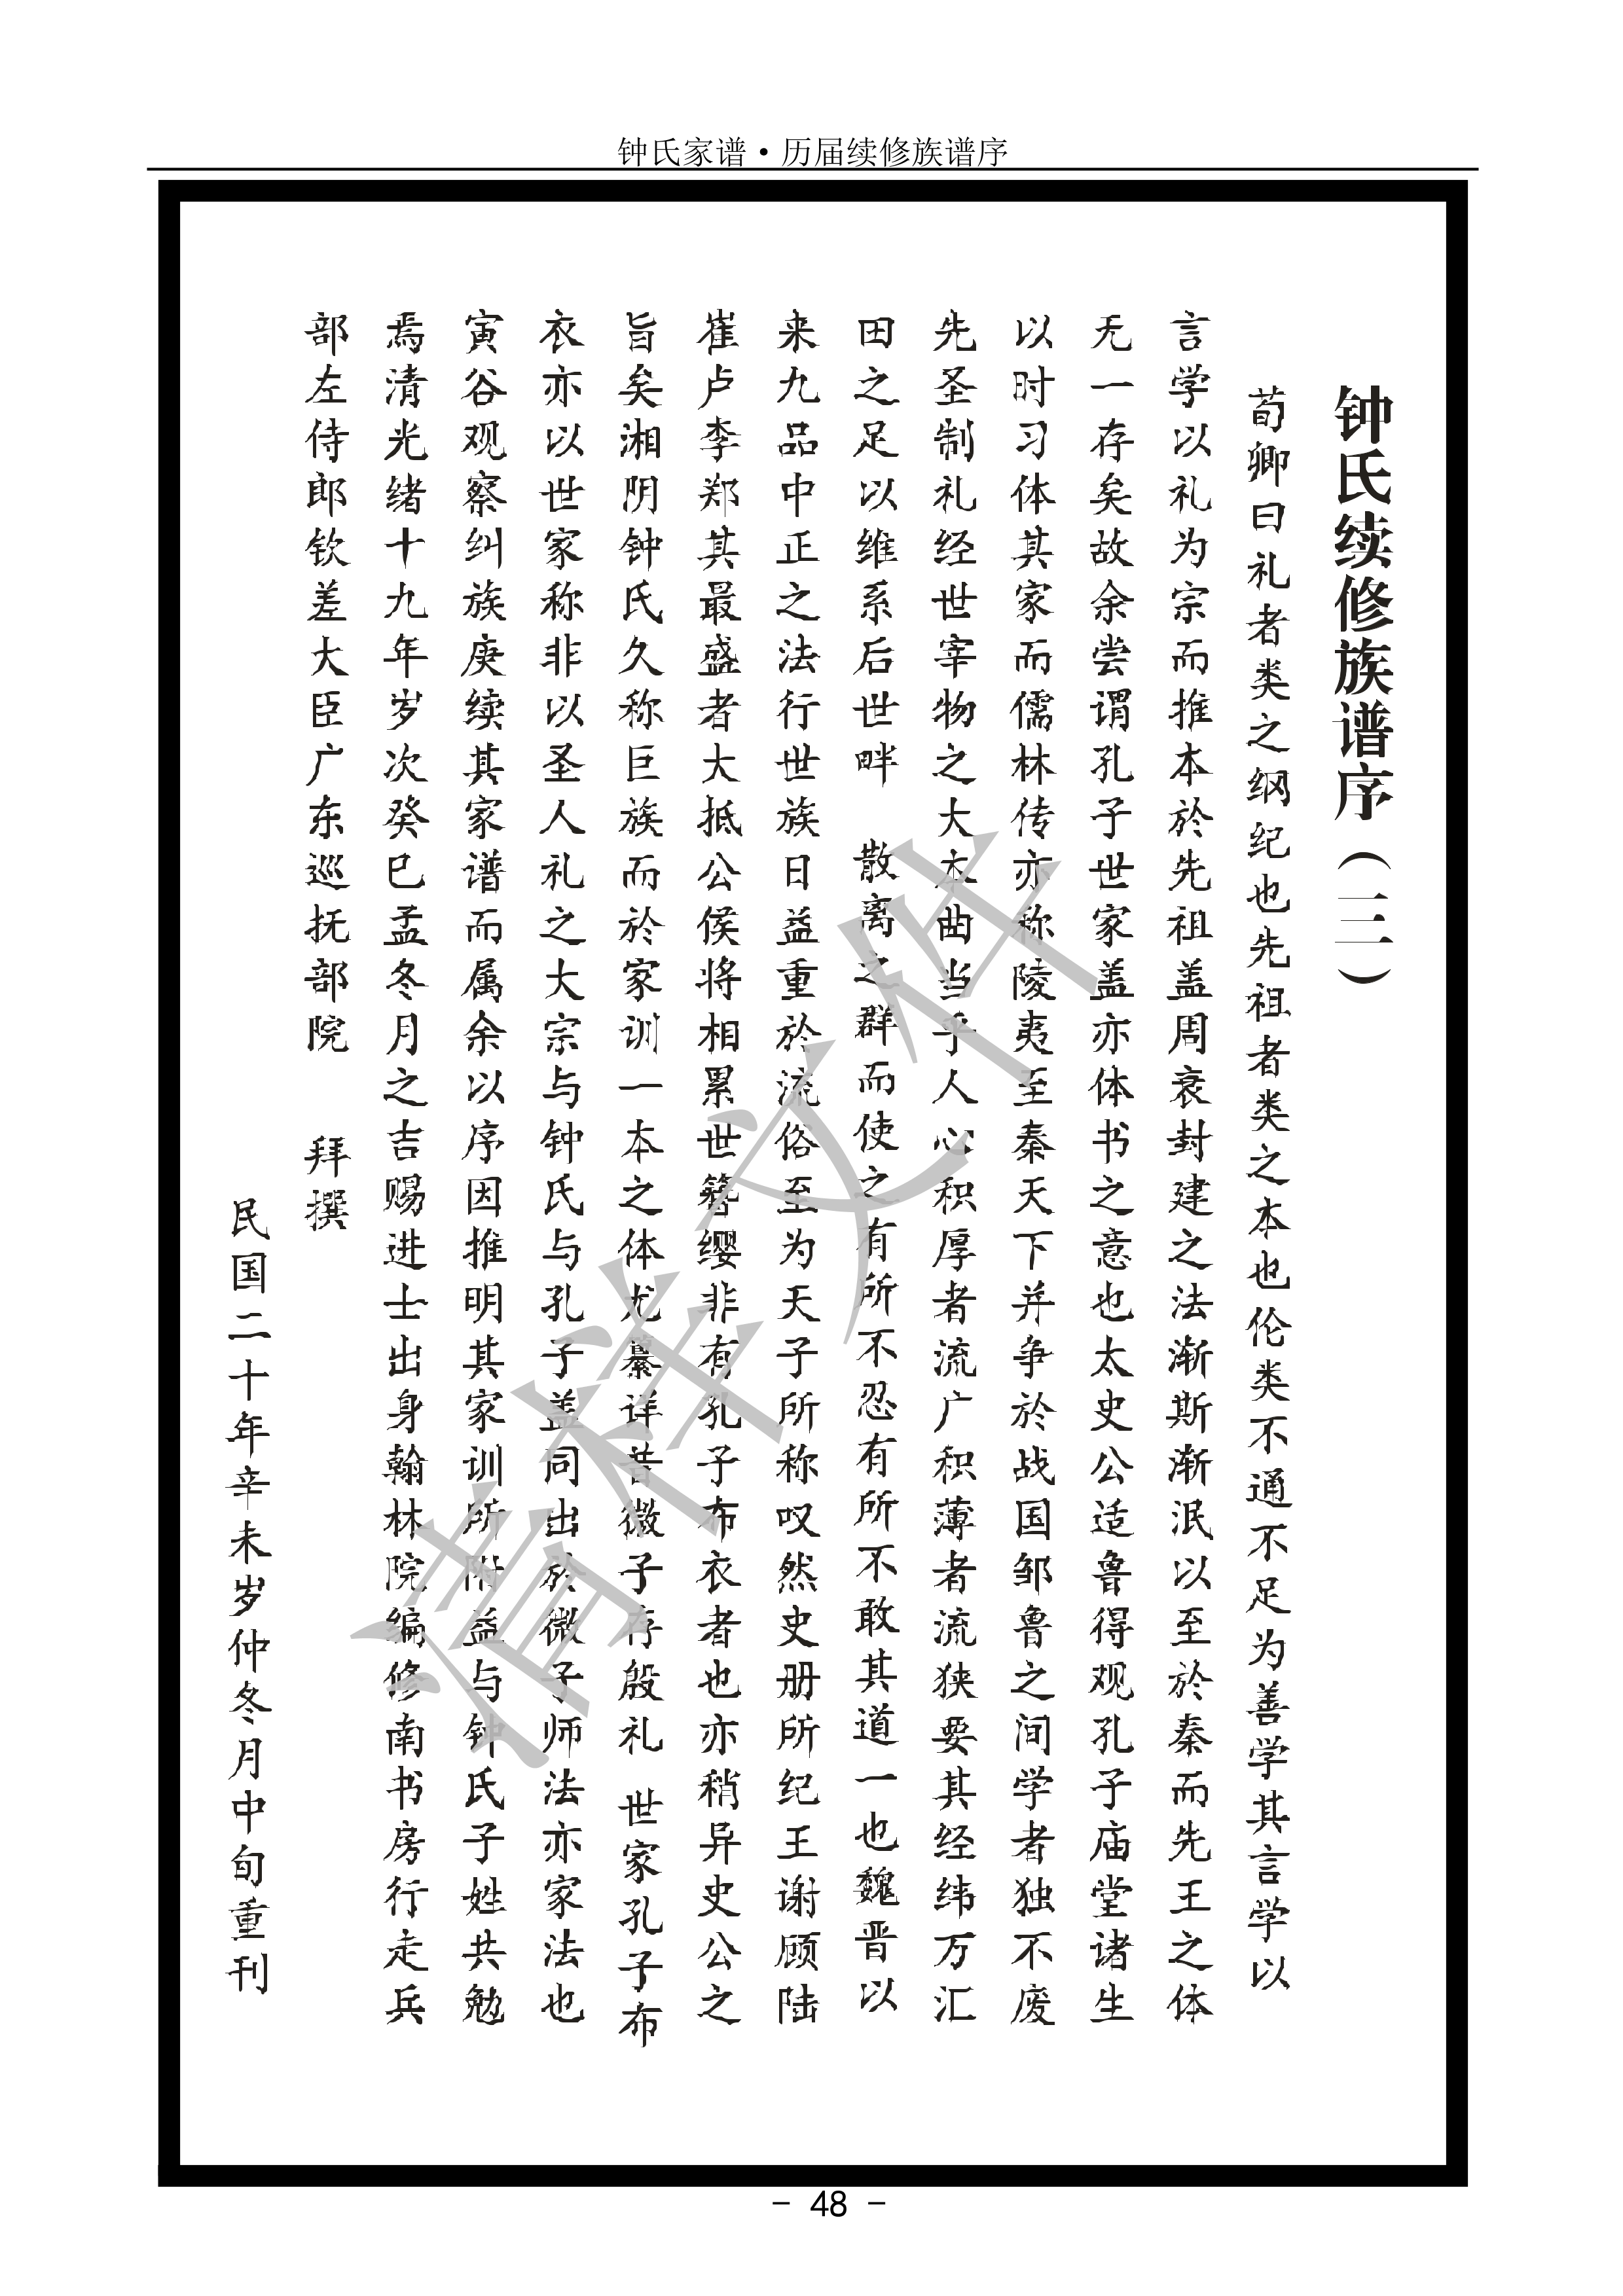 钟氏家谱·历届续修族谱序
钟氏续修族谱序（三）
荀卿曰礼者类之纲纪也先祖者类之本也伦类不通不足为善学其言学以
言学以礼为宗而推本於先祖盖周衰封建之法渐斯渐泯以至於秦而先王之体
无一存矣故余尝谓孔子世家盖亦体书之意也太史公适鲁得观孔子庙堂诸生
以时习体其家而儒林传亦称陵夷至秦天下并争於战国邹鲁之间学者独不废
先圣制礼经世宰物之大本曲当乎人心积厚者流广积薄者流狭要其经纬万汇
田之足以维系后世畔 散离之群而使之有所不忍有所不敢其道一也魏晋以
来九品中正之法行世族日益重於流俗至为天子所称叹然史册所纪王谢顾陆
崔卢李郑其最盛者大抵公侯将相累世簪缨非有孔子布衣者也亦稍异史公之
旨矣湘阴钟氏久称巨族而於家训一本之体尤纂详昔微子存殷礼 世家孔子布
衣亦以世家称非以圣人礼之大宗与钟氏与孔子盖同出於微子师法亦家法也
寅谷观察纠族庚续其家谱而属余以序因推明其家训所附益与钟氏子姓共勉
焉清光绪十九年岁次癸巳孟冬月之吉赐进士出身翰林院编修南书房行走兵
部左侍郎钦差大臣广东巡抚部院 拜撰
民国二十年辛未岁仲冬月中旬重刊
清样文件
- 48 -